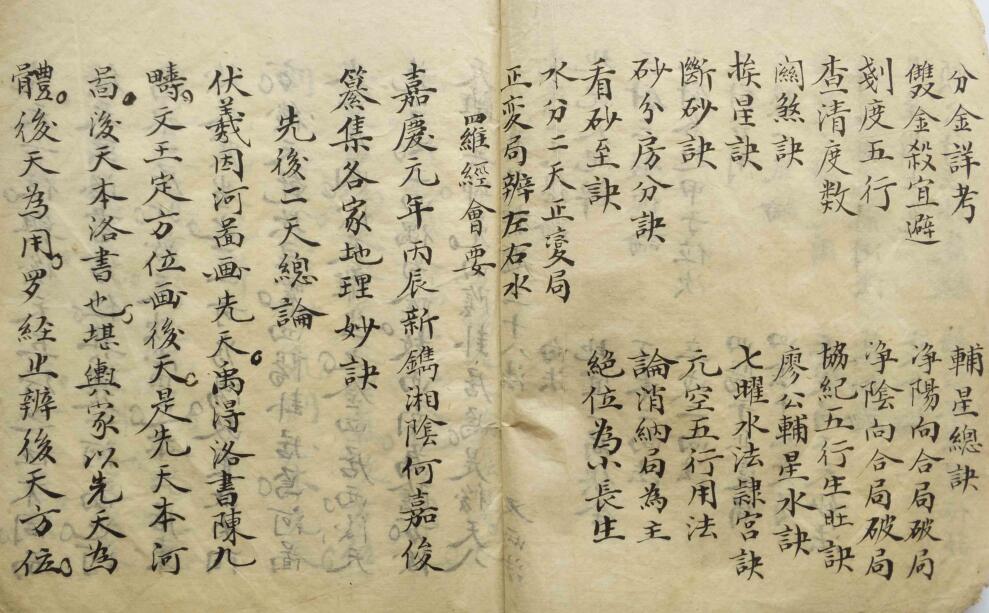 分金詳考
雙金殺宜避
剗度五行
查清度数
瀾煞訣
挨星訣
斷砂訣
砂分房分訣
看砂至訣
水分二天正変局
正变局辨左右水
輔星總訣
净陽向合局破局
净陰向合局破局
協紀五行生旺訣
廖公輔星水訣
七曜水法隷宮訣
元空五行用法
論消納局為主
絕位為小長生
四維經會要
嘉慶元年丙辰新鐫湘陰何嘉俊
纂集各家地理妙訣
先後二天總論
伏羲因河啚画先天。禹淂洛書陳九
疇。文王定方位画後天。是先天本河
啚。後天本洛書也。堪輿家以先天為
體。後天為用。罗经止辨後天方位。